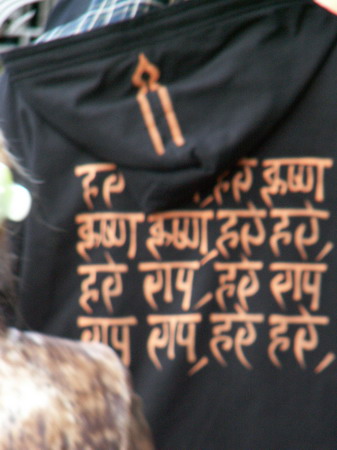 हरे , हरे कृष्ण
कृष्ण कृष्ण, हरे हरे,
हरे राम, हरे राम
राम राम, हरे हरे,